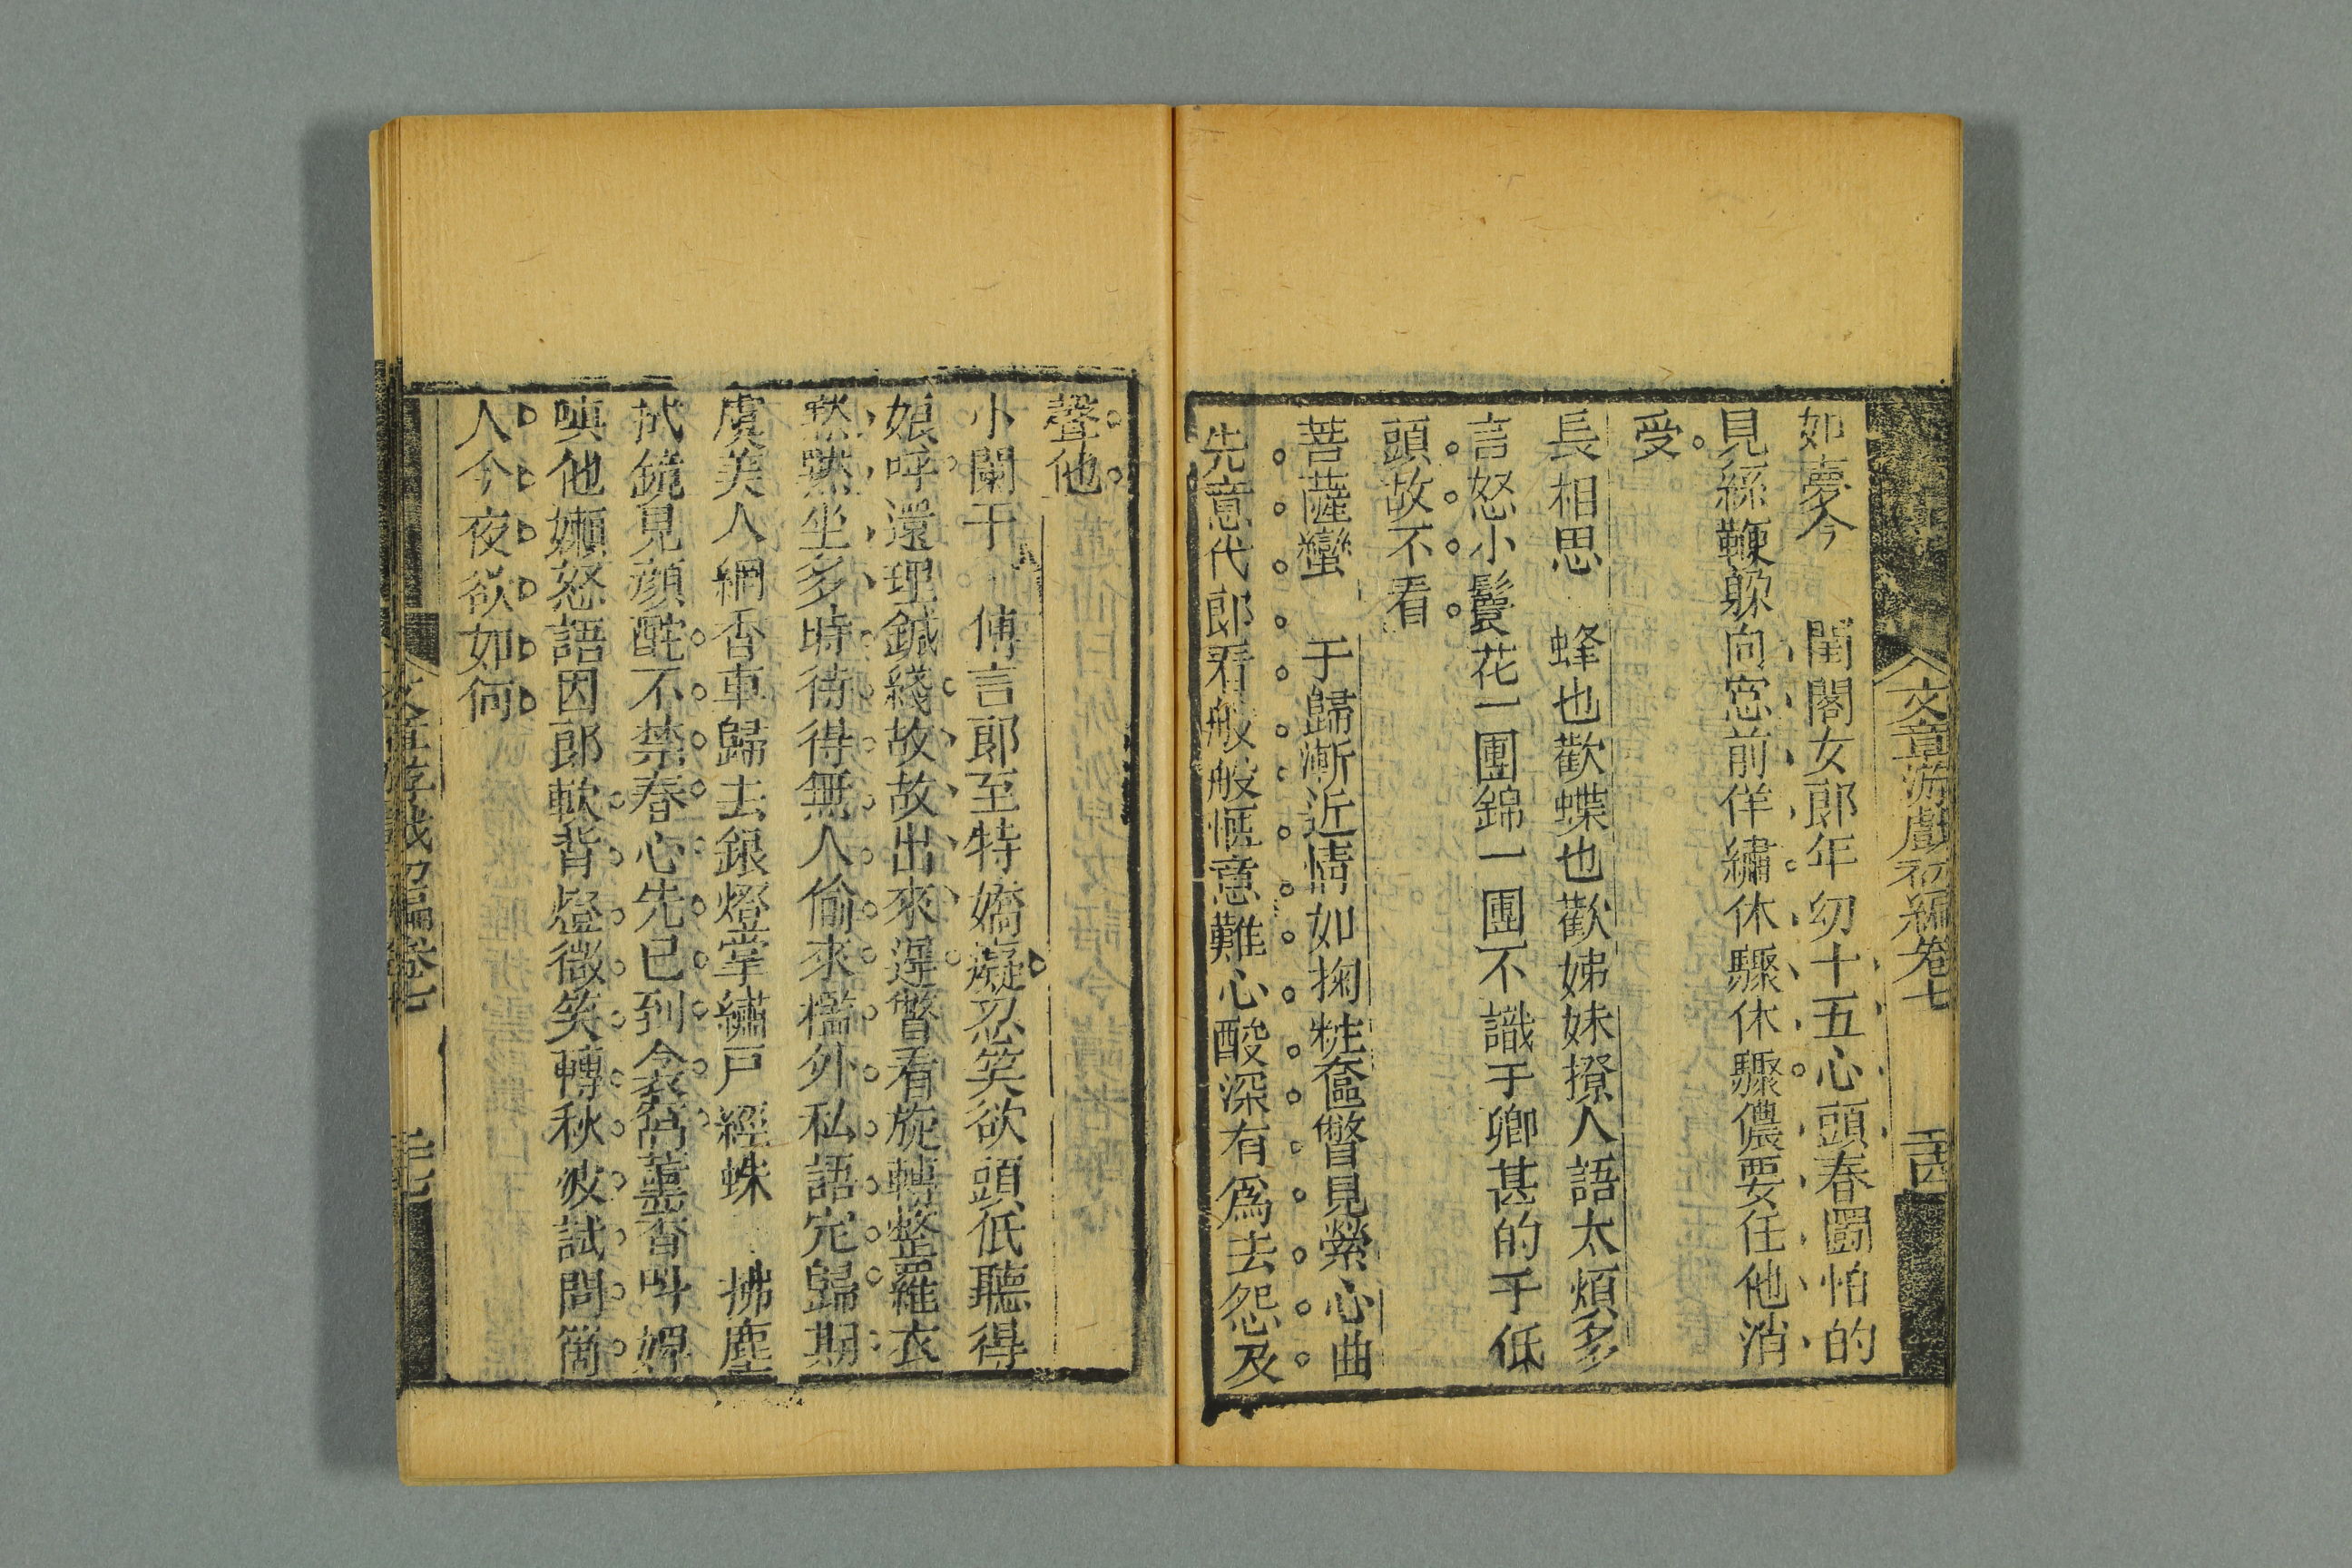 文章游戲初編卷七 二十四
如夢令 閨閣女郎年幼十五心頭春鬭怕的
見絲鞭躱向窓前佯繡休驟休驟儂要任他消
受
長相思 蜂也歡蝶也歡姊妹撩人語太煩多
言怒小鬟花一團錦一團不識于卿甚的于低
頭故不看
菩薩蠻 于歸漸近情如掬粧奩瞥見縈心曲
先意代郎看般般愜意難心酸深有爲去怨及
聲他
小闌干 傳言郎至特嬌癡忍笑欲頭低聽得
娘呼還理鍼綫故故出來遲瞥看旋轉整羅衣
默默坐多時待得無人偷來檻外私語完歸期
虞美人 網香車歸去銀燈掌繡戶經蛛 拂塵
拭鏡見顏酡不禁春心先已到衾窩薰香叫婢
嗔他嬾怒語因郎軟背燈微笑轉秋波試問箇
人今夜欲如何
文章游戲初編卷七